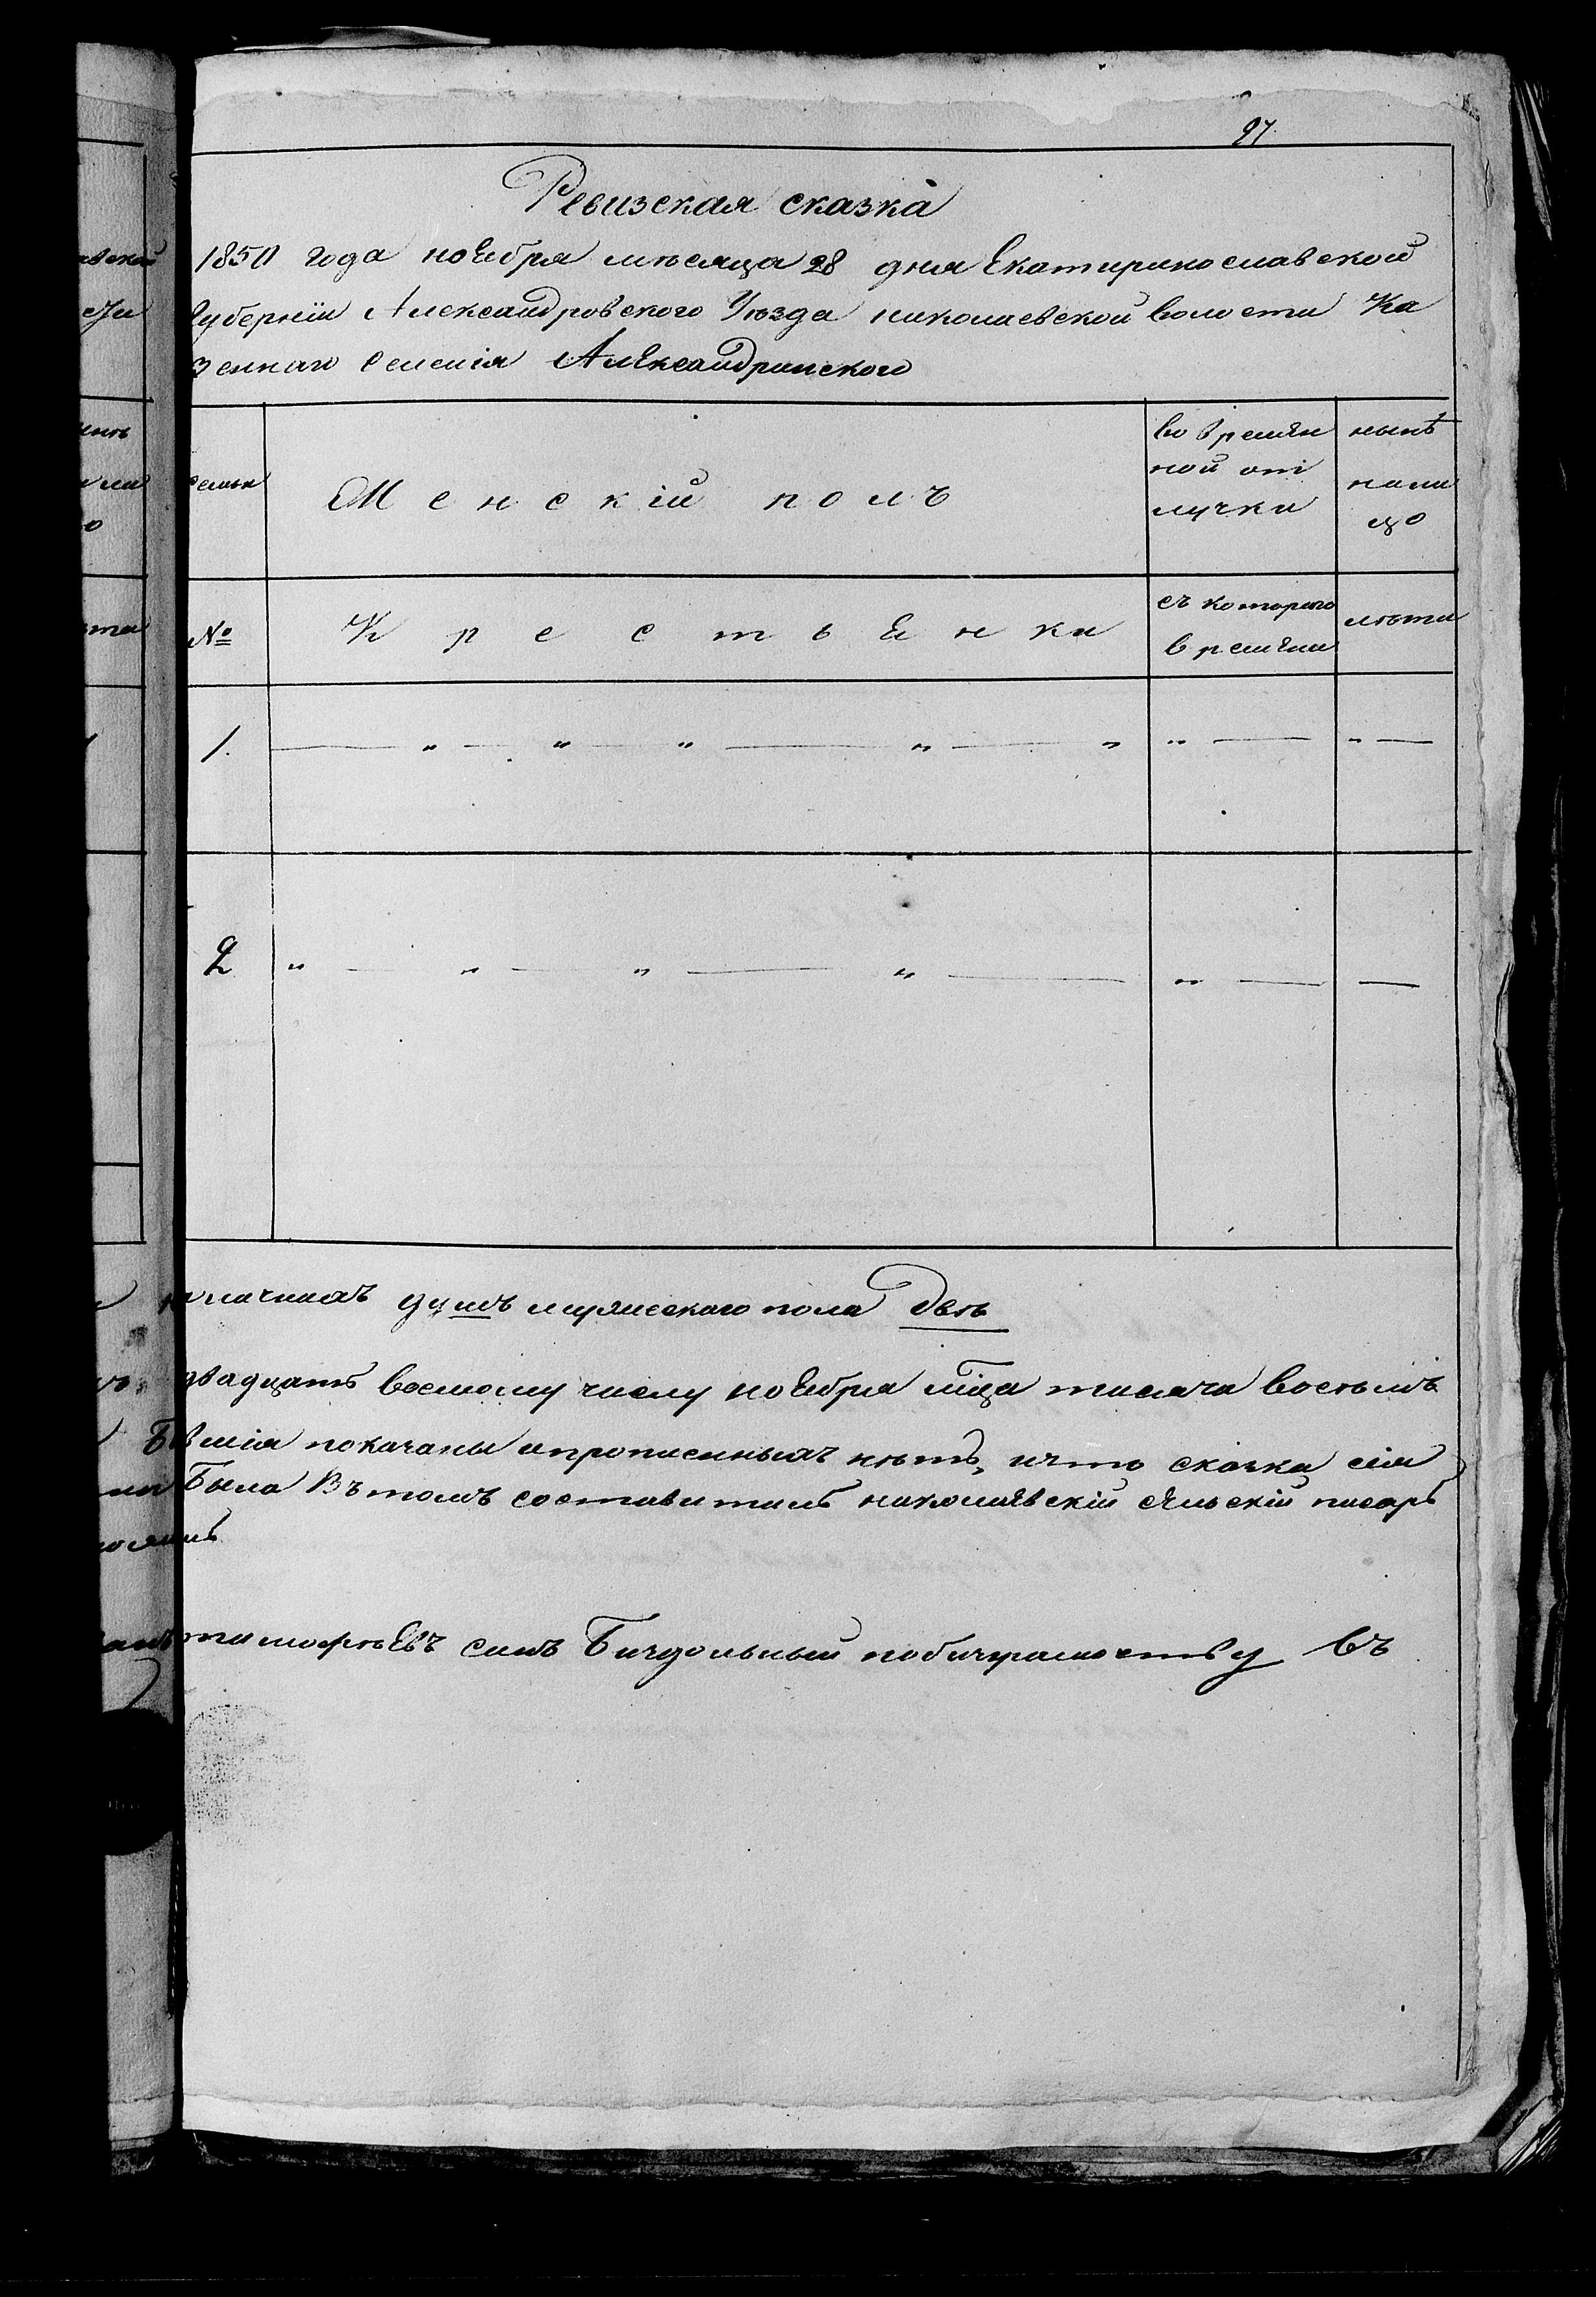 97.
Ревизская сказка
1850 года ноЕября мѣсяца 28 дня Екатиринославской
Губерніи Александровского Уѣзда николаевской волости Ка
зеннаго селенія АлЕксандринского
семьи
Женскій полъ
во времян
ной от
лучки
нынѣ
нали
цо
№
КрестьЕнки
съ которого
времяни
лѣта
1.
2
наличнихъ душъ мужескаго пола двѣ
двадцать восмому числу ноЕбря мца тисяча восемъ
показаны ипрописныхъ нѣтъ, ичто сказка сія
Была Въ томъ составитиль николаЕвскій сЕльскій писарь
тимофѣЕвъ синъ Биздольный побизграмотству въ